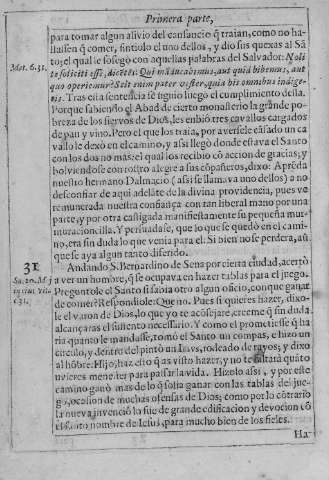 Primera parte,
para tomar algun alivio del cansancio q̃ traian, como no ha-
llassen q̃ comer, sintiolo el uno dellos, y dio sus quexas al Sã
to; el qual le sosegò con aquellas palabras del Salvador: Noli
te soliciti esse, dicẽtes: Qui mãducabimus, aut quid bibemus, aut
quo operiemur? Scit enim pater vester, quia his omnibus indige-
tis. Tras esta sentẽcia se siguio luego el cumplimiento della.
Porque sabiendo el Abad de cierto monasterio la grande po-
breza de los siervos de Dios, les enbiò tres cavallos cargados
de pan y vino. Pero el que los traia, por aversele cãsado un ca
vallo le dexò en el camino, y assi llegò donde estava el Santo
con los dos no mas: el qual los recibio cõ accion de gracias; y
bolviendose con rostro alegre a sus cõpañeros, dixo: Aprẽda
nuestro hermano Dalmacio (assi se llamava uno dellos) a no
desconfiar de aqui adelãte de la divina providencia, pues ve
remunerada nuestra confiança con tan liberal mano por una
parte, y por otra castigada manifiestamente su pequeña mur-
muracioncilla. Y persuadase, que lo que se quedò en el cami-
no, era sin duda lo que venia para el. Si bien no se perdera, aũ
que se aya algun tanto diferido.
Andando S. Bernardino de Sena por cierta ciudad, acertò
a ver un hombre, q̃ se ocupava en hazer tablas para el juego.
Preguntole el Santo si sabia otro algun oficio, con que ganar
de comer? Respondiole: Que no. Pues si quieres hazer, dixo-
le el varon de Dios, lo que yo te acõsejare, creeme q̃ sin duda
alcançaras el sustento necessario. Y como el prometiesse q̃ ha
ria quanto le mandasse, tomò el Santo un compas, e hizo un
circulo, y dentro del pintò un Iesus, rodeado de rayos; y dixo
al hõbre: Hijo, haz esto q̃ as visto hazer, y no te faltarà quãto
uvieres menester para passar la vida. Hizolo assi, y por este
camino ganò mas de lo q̃ solia ganar con las tablas del jue-
go, ocasion de muchas ofensas de Dios; como por lo cõtrario
la nueva invenciõ la fue de grande edificacion y devocion cõ
el santo nombre de Iesus, para mucho bien de los fieles.
Ha-
Mat. 6. 31.
31